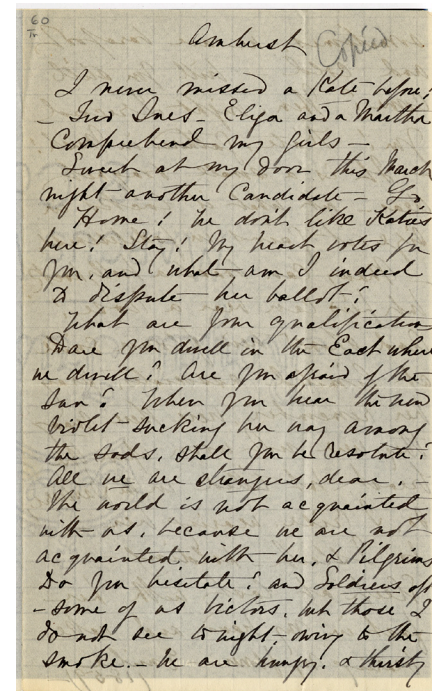 60
Tr
Amherst Copied
I never missed a Kate before!
- Two Sues - Eliza and a Martha
Comprehend my girls -
Sweet at my Door this March
night another Candidate - Go
Home! We don't like Katies
here! Stay! My heart votes for
you, and what am I indeed
to dispute her ballot!
What are your qualifications
Dare you dwell in the East where
we dwell? Are you afraid of the
Sun? When you hear the new
violet sucking her way among
the sods, shall you be resolute?
All we are strangers, dear, -
The world is not acquainted
with us, because we are not
acquainted, with her, & Pilgrims
Do you hesitate? and Soldiers oft
- some of us victors, but those I
do not see tonight, owing to the
smoke. - We are hungry, & thirsty